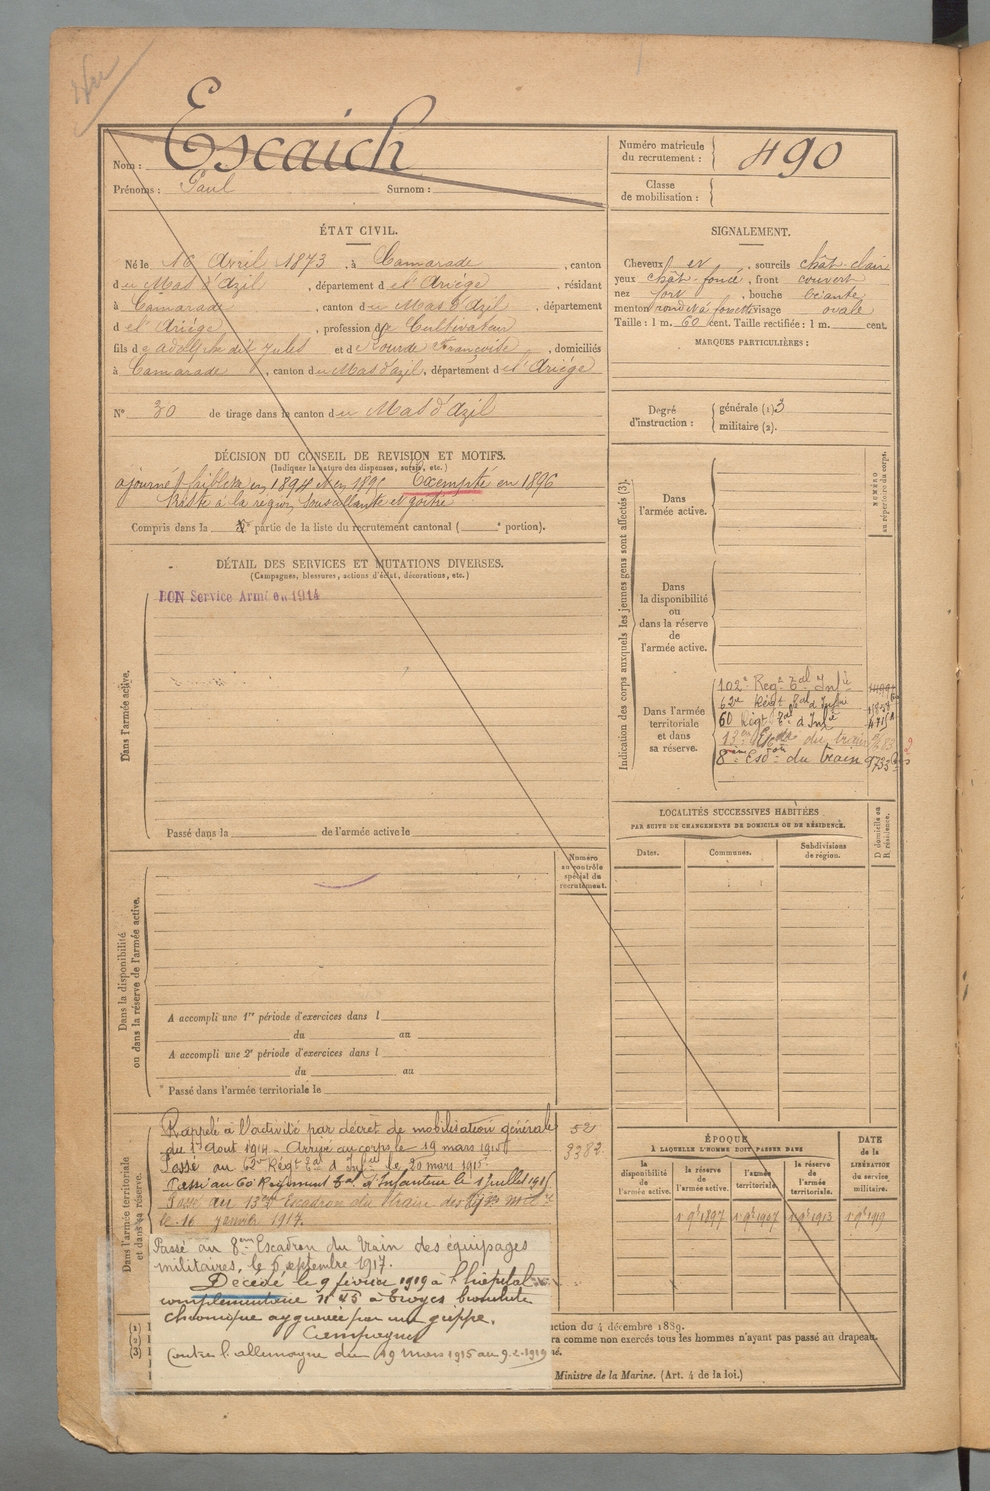 Nom : Escaich
Prénoms : Paul Surnom :
Numéro matricule du recrutement : 490
Classe de mobilisation :
ÉTAT CIVIL.
Né le 16 Avril 1873, à Camarade, canton
du Mas d'Azil, département de l'Ariège, résidant
à Camarade, canton du Mas d'Azil, département
de l'Ariège, profession de Cultivateur
fils de Adolphe dit Jules et de Lourde Françoise, domiciliés
à Camarade, canton du Mas d'azil, département de l'Ariège
N° 30 de tirage dans le canton du Mas d'Azil
SIGNALEMENT.
Cheveux et, sourcils chât-clair
yeux chât-foncé, front couvert
nez fort, bouche béante
menton rond et à fossette visage ovale
Taille : 1 m. 60 cent. Taille rectifiée : 1 m. cent.
MARQUES PARTICULIÈRES :
Degré d'instruction : générale (1) 3
militaire (2).
DÉCISION DU CONSEIL DE REVISION ET MOTIFS.
(Indiquer la nature des dispenses, sursis, etc.)
ajourné faiblesse en 1894 et en 1895 Exempté en 1896
à la région et goitre
Compris dans la partie de la liste du recrutement cantonal ( e portion).
DÉTAIL DES SERVICES ET MUTATIONS DIVERSES.
(Campagnes, blessures, actions d'éclat, décorations, etc.)
BON Service Armé en 1914
Dans l'armée active.
Passé dans la de l'armée active le
Numéro au contrôle spécial du recrutement.
Dans la disponibilité ou dans la réserve de l'armée active.
A accompli une 1re période d'exercices dans l
du au
A accompli une 2e période d'exercices dans l
du au
Passé dans l'armée territoriale le
Dans l'armée territoriale et dans sa réserve.
Rappelé à l'activité par décret de mobilisation générale 52
du 1er Aout 1914 - Arrivé au corps le 19 mars 1915 3382
Passé au 62e Régt tal d'Infie le 20 mars 1915
Passé au 60e Régiment tal d'Infanterie le 1 juillet 1915
Passé au 13e Escadron du train des équip. mil.
le 16 janvier 1917.
Passé au 8eme Escadron du train des équipages
militaires, le 6 septembre 1917.
Décédé le 9 février 1919 à l'hôpital
complémentaire N° 45 à Troyes bronchite
chronique aggravée par une grippe.
Campagnes
Contre l'allemagne du 19 mars 1915 au 9-2-1919
Indication des corps auxquels les jeunes gens sont affectés (3).
NUMÉRO au répertoire du corps.
Dans l'armée active.
Dans la disponibilité ou dans la réserve de l'armée active.
Dans l'armée territoriale et dans sa réserve.
102e Regt Tal Infie
62me Régt Tal d'Infie
60 Régt Tal d'Infie
13em Esd. du train
8eme Esdon du train 9733
LOCALITÉS SUCCESSIVES HABITÉES
PAR SUITE DE CHANGEMENTS DE DOMICILE OU DE RÉSIDENCE.
Dates. Communes. Subdivisions de région.
D domicile ou R résidence.
ÉPOQUE
À LAQUELLE L'HOMME DOIT PASSER DANS
la disponibilité de l'armée active.
la réserve de l'armée active.
l'armée territoriale.
la réserve de l'armée territoriale.
DATE DE LA LIBÉRATION du service militaire.
1er 9bre 1897 1er 9bre 1907 1er 9bre 1913 1er 9bre 1919
(1)
(2)
(3)
ction du 4 décembre 1889.
ra comme non exercés tous les hommes n'ayant pas passé au drapeau.
né.
Ministre de la Marine. (Art. 4 de la loi.)